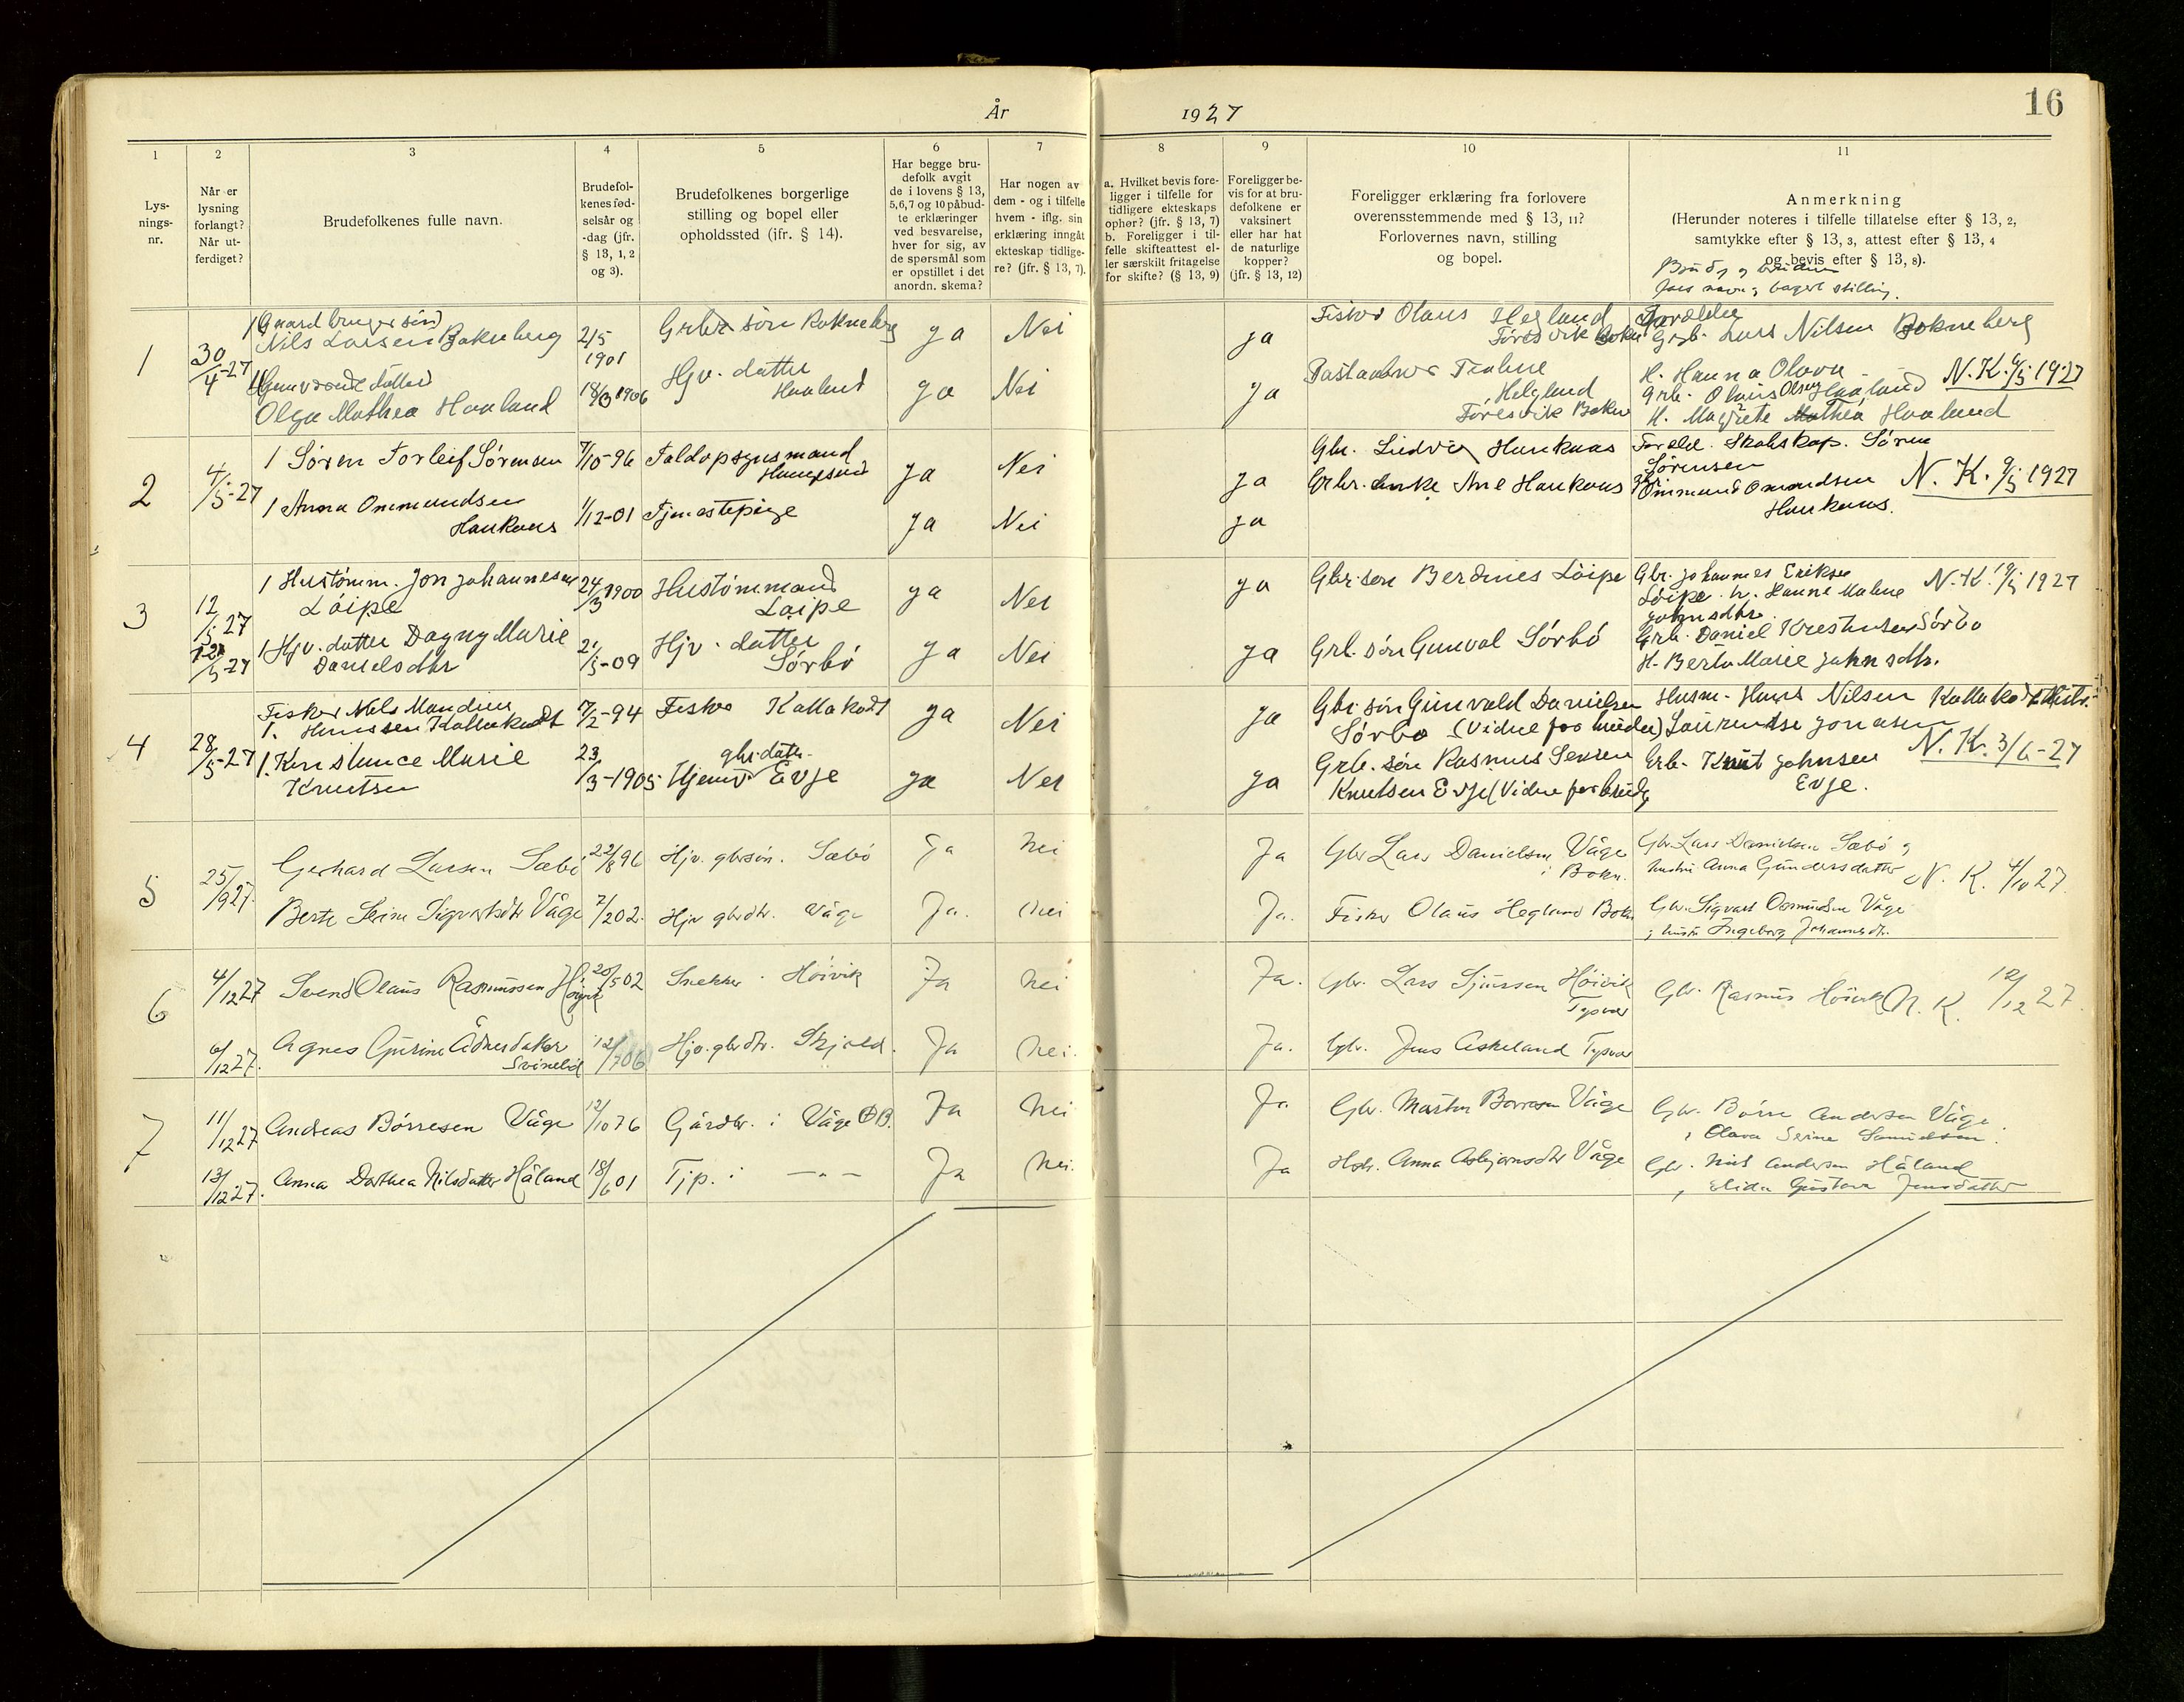 År 1927
16
1
Lys-
nings-
nr.
2
Når er
lysning
forlangt?
Når ut-
ferdiget?
3
Brudefolkenes fulle navn.
4
Brudefol-
kenes fød-
selsår og
-dag (jfr.
§ 13, 1, 2
og 3).
5
Brudefolkenes borgerlige
stilling og bopel eller
opholdssted (ifr. § 14).
6
Har begge bru-
defolk avgit
de i lovens § 13,
5,6,7 og 10 påbud-
te erklæringer
ved besvarelse,
hver for sig, av
de spørsmål som
er opstillet i det
anordn. skema?
7
Har nogen av
dem - og i tilfelle
hvem - iflg. sin
erklæring inngåt
ekteskap tidlige-
re? (jfr. § 13, 7).
8
a. Hvilket bevis fore-
ligger i tilfelle for
tidligere ekteskaps
ophør? (jfr. § 13, 7)
b. Foreligger i til-
felle skifteattest el-
ler særskilt fritagelse
for skifte? (§ 13, 9)
9
Foreligger be-
vis for at bru-
defolkene er
vaksinert
eller har hat
de naturlige
kopper?
(jfr. § 13, 12)
10
Foreligger erklæring fra forlovere
overensstemmende med § 13, 11?
Forlovernes navn, stilling
og bopel.
11
Anmerkning
(Herunder noteres i tilfelle tillatelse efter § 13, 2,
samtykke efter § 13, 3, attest efter § 13, 4
og bevis efter § 13, 8).
1
30/4-27
Nils Larsen Bokneberg
2/5 1901
Grbr søn Bokneberg
ja
Nei
ja
Fisker Olaus Hegland
Føresvik Bokn
Forældre
Grb. Lars Nilsen Bokneberg
H. Hanna Olava
Olga Mathea Haaland
18/3 1906
Hjv. datter
Haaland
ja
Nei
ja
Helgland
Føresvik Bokn
Grb. Olaus Olsen Haaland
N.K. 6/5 1927
H. Margrete Mathea Haaland
2
4/5-27
1 Søren Torleif Sørensen
7/10-96
Toldopsynsmand
Haugesund
ja
Nei
ja
Gbr. Ludvig Haukaas
Foreld. Skolskap. Søren
Sørensen
1 Anna Ommundsen
Haukaas
1/12-01
Tjenestepige
ja
Nei
ja
Grbr. enke Ane Haukaas
Ommund Omundsen
Haukaas.
N. K. 9/5 1927
3
12/5-27
1 Hustømm. Jon Johannesen
Løipe
24/3 1900
Hustømmand
Løipe
ja
Nei
ja
Gbr. søn Berdines Løipe
Gbr. Johannes Eriksen
Løipe. h. Hanne Malene
Johnsdtr.
N.K. 19/5 1927
12/5-27
1 Hjv. datter Dagny Marie
Danielsdtr
2/5-09
Hjv. datter
Sørbø
ja
Nei
ja
Grb. søn Gunval Sørbø
Grb. Daniel Kristensen Sørbø
H. Berta Marie Johnsdtr.
4
28/5-27
Fisker Nils Mandius
1. Hanssen Kallakodt
7/2-94
Fisker Kallakodt
ja
Nei
ja
Gbr. søn Gunvald Danielsen
Sørbø (Vidne for bruden)
Husm. Hans Nilsen Kallakodt
Laurendse Jonasen
1. Konstance Marie
Knutsen
23/3-1905
gbr. datter
Hjemv. Evje
ja
Nei
ja
Grb. søn Rasmus Severin
Knutsen Evje (Vidne for brudg
Grb. Knut Johnsen
Evje.
N. K. 3/6-27
5
25/9 27.
Gerhard Larsen Sæbø
22/8 96
Hjv. gbrsøn. Sæbø
Ja
Nei
Ja
Gbr Lars Danielsen Våge
i Bokn.
Gbr. Lars Danielsen Sæbø og
hustru Anna Gundersdatter
N. K. 4/10 27.
Berte Serine Sigvartsdtr Våge
7/2 02.
Hjv gbrdtr. Våge
Ja.
Nei
Ja.
Fisker Olaus Hegland Bokn
Gbr. Sigvart Osmundsen Våge
og hustru Ingeborg Johannesdtr.
6
4/12 27
Svend Olaus Rasmussen Høivik
20/5 02
Snekker. Høivik
Ja
Nei
Ja.
Gbr. Lars Sjursen Høivik
Tysvær
Gbr. Rasmus Høivik
N. K. 12/12 27.
6/12 27.
Agnes Gurine Ådnesdatter
Svinelid
12/7 06
Hjv. gbrdtr. Skjold.
Ja
Nei.
Ja.
Gbr. Jens Askeland Tysvær
7
11/12 27
Andreas Børresen Våge
12/10 76
Gårdbr. i Våge
Ja
Nei
Ja
Gbr. Martin Børresen Våge
Gbr. Børre Andersen Våge.
Olava Serine Samuelsen.
13/12 27.
Anna Dorthea Nilsdatter Håland
18/6 01
Tjp. i — „ —
Ja
Nei.
Ja
Anna Asbjørnsdtr Våge
Gbr. Nils Andersen Håland
Elida Gustava Jensdatter